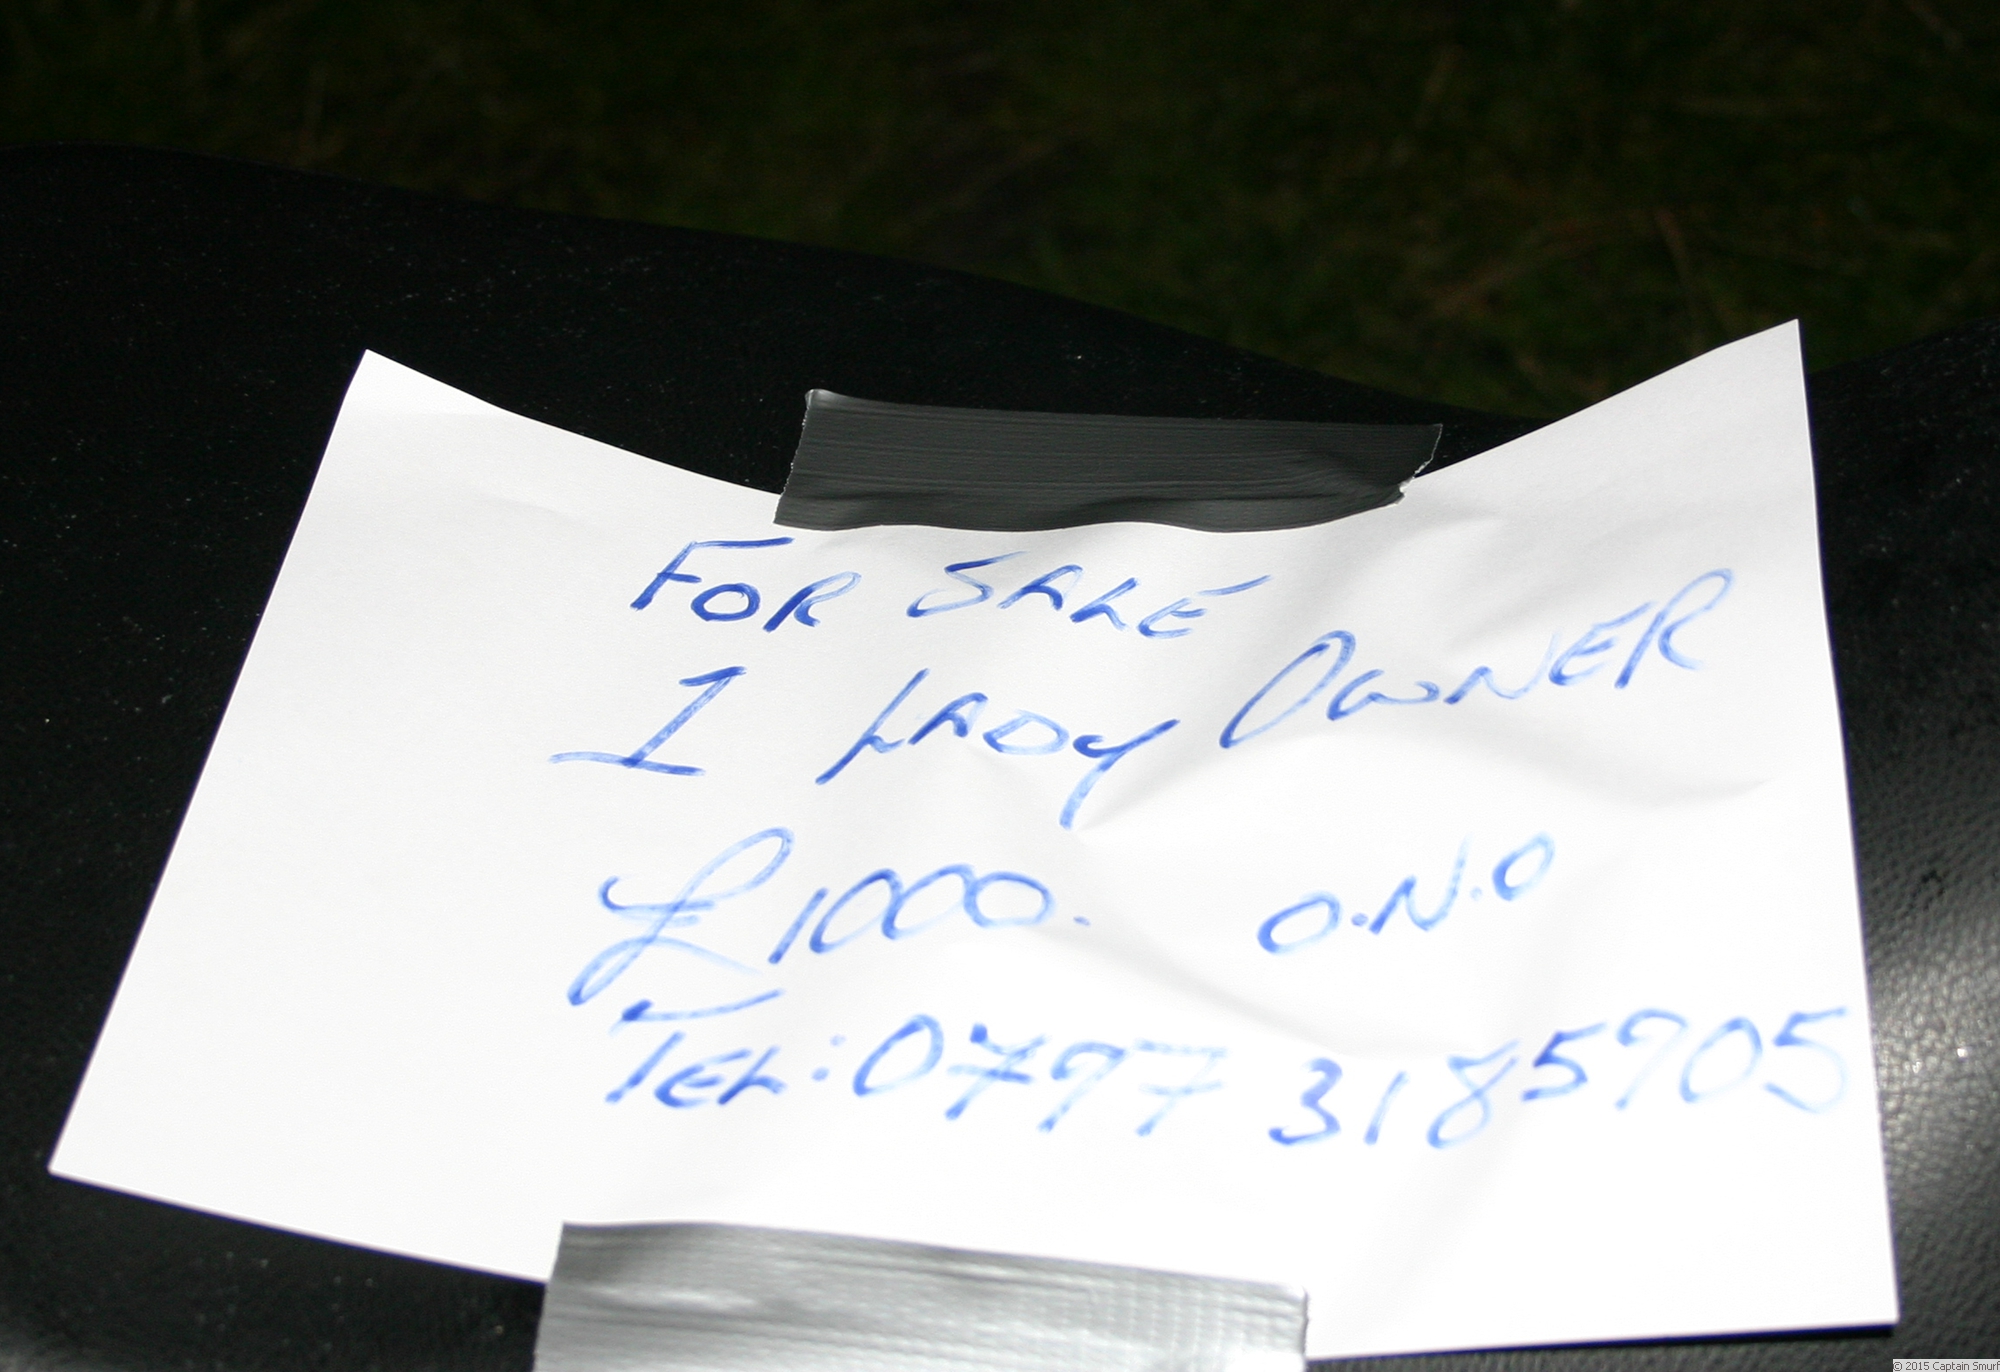 FOR SALE
1 LADY OWNER
£1000. O.N.O
TEL: 0797 3185905
© 2015 Captain Smurf